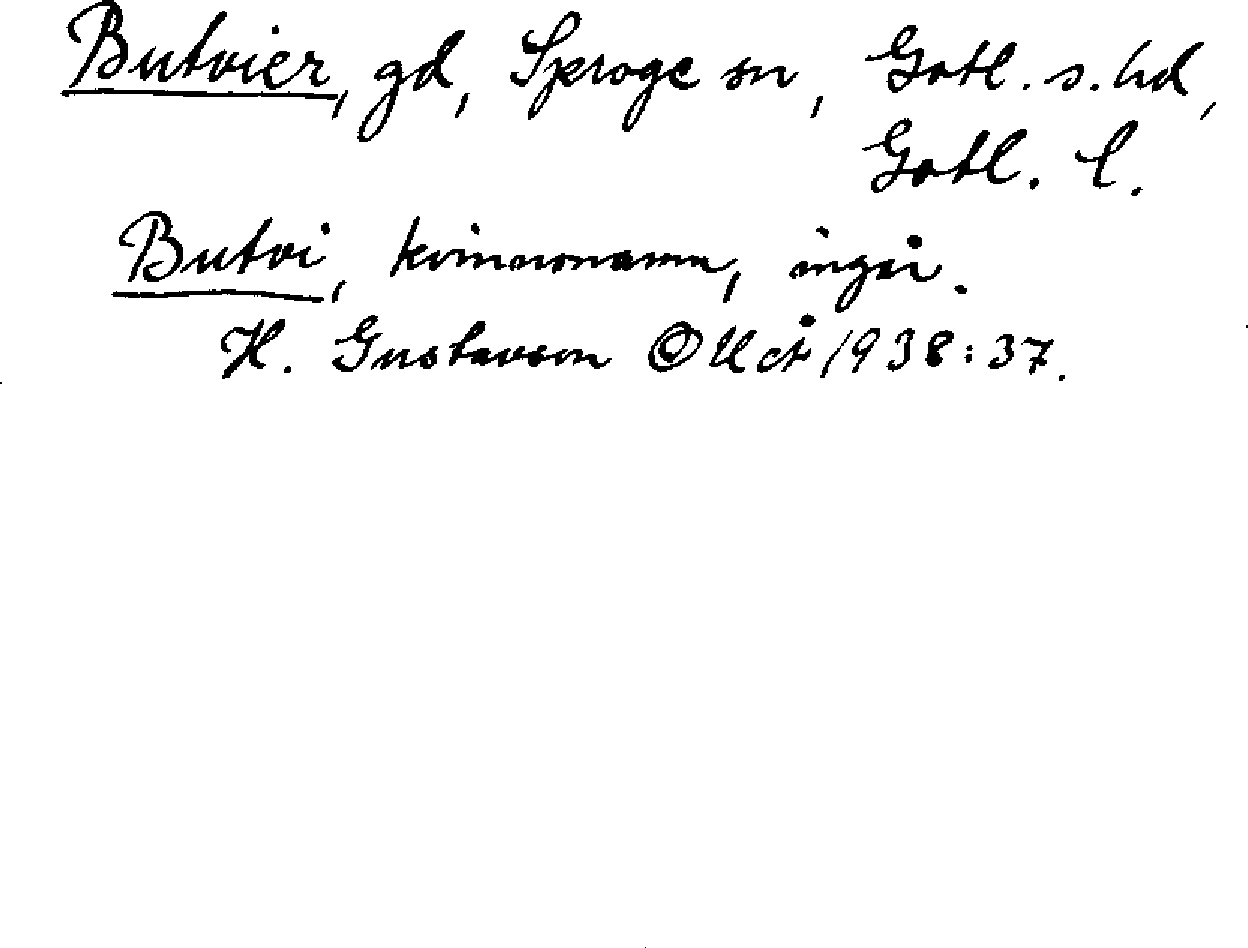 Butvier, gd, Sproge sn, Gotl. s. hd,
Gotl. l.
Butvi, kvinnonamn, ingår.
H. Gustavson © UUÅ 1938:37.